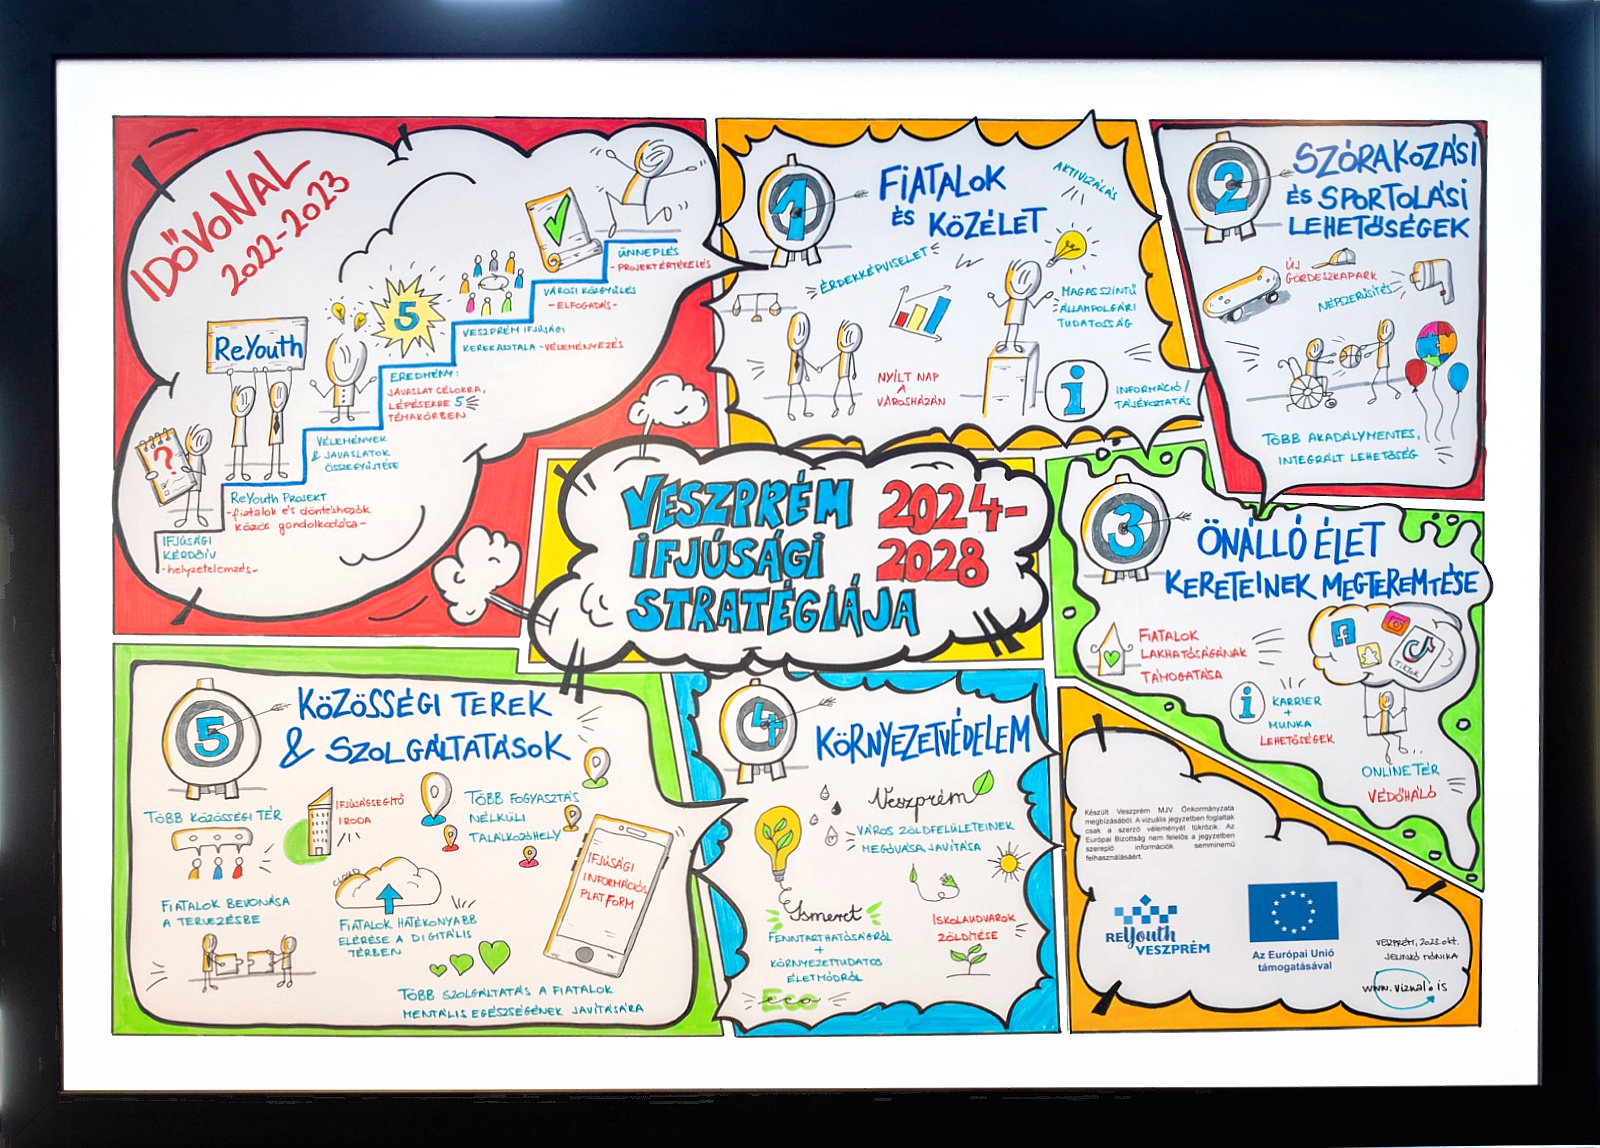 IDŐVONAL
2022-2023
ReYouth
?
5
IFJÚSÁGI
KÉRDŐÍV
-helyzetelemzés-
ReYouth PROJEKT
-fiatalok és döntéshozók
közös gondolkodása-
VÉLEMÉNYEK
& JAVASLATOK
ÖSSZEGYŰJTÉSE
EREDMÉNY:
JAVASLAT CÉLOKRA,
LÉPÉSEKRE 5
TÉMAKÖRBEN
VESZPRÉM IFJÚSÁGI
KEREKASZTALA -VÉLEMÉNYEZÉS
VÁROSI KÖZGYŰLÉS
-ELFOGADÁS-
ÜNNEPLÉS
-PROJEKTÉRTÉKELÉS
1
FIATALOK
ÉS KÖZÉLET
AKTIVIZÁLÁS
ÉRDEKKÉPVISELET
MAGAS SZINTŰ
ÁLLAMPOLGÁRI
TUDATOSSÁG
NYÍLT NAP
A
VÁROSHÁZÁN
i
INFORMÁCIÓ/
TÁJÉKOZTATÁS
2
SZÓRAKOZÁSI
ÉS SPORTOLÁSI
LEHETŐSÉGEK
ÚJ
GÖRDESZKAPARK
NÉPSZERŰSÍTÉS
TÖBB AKADÁLYMENTES,
INTEGRÁLT LEHETŐSÉG
VESZPRÉM 2024-
IFJÚSÁGI 2028
STRATÉGIÁJA
3
ÖNÁLLÓ ÉLET
KERETEINEK MEGTEREMTÉSE
FIATALOK
LAKHATÁSÁNAK
TÁMOGATÁSA
f
TikTok
i
KARRIER
+
MUNKA
LEHETŐSÉGEK
ONLINE TÉR
VÉDŐHÁLÓ
5
KÖZÖSSÉGI TEREK
& SZOLGÁLTATÁSOK
TÖBB KÖZÖSSÉGI TÉR
IFJÚSÁGSEGÍTŐ
IRODA
TÖBB FOGYASZTÁS
NÉLKÜLI
TALÁLKOZÓHELY
IFJÚSÁGI
INFORMÁCIÓS
PLATFORM
CLOUD
FIATALOK BEVONÁSA
A TERVEZÉSBE
FIATALOK HATÉKONYABB
ELÉRÉSE A DIGITÁLIS
TÉRBEN
TÖBB SZOLGÁLTATÁS A FIATALOK
MENTÁLIS EGÉSZSÉGÉNEK JAVÍTÁSÁRA
4
KÖRNYEZETVÉDELEM
Veszprém
VÁROS ZÖLDFELÜLETEINEK
MEGÓVÁSA, JAVÍTÁSA
Ismeret
FENNTARTHATÓSÁGRÓL
+
KÖRNYEZETTUDATOS
ÉLETMÓDRÓL
eco
ISKOLAUDVAROK
ZÖLDÍTÉSE
Készült Veszprém MJV Önkormányzata
megbízásából. A vizuális jegyzetben foglaltak
csak a szerző véleményét tükrözik. Az
Európai Bizottság nem felelős a jegyzetben
szereplő információk semminemű
felhasználásáért.
REYouth
VESZPRÉM
Az Európai Unió
támogatásával
VESZPRÉM, 2023. okt.
JELINKÓ MÓNIKA
www.vizual.is